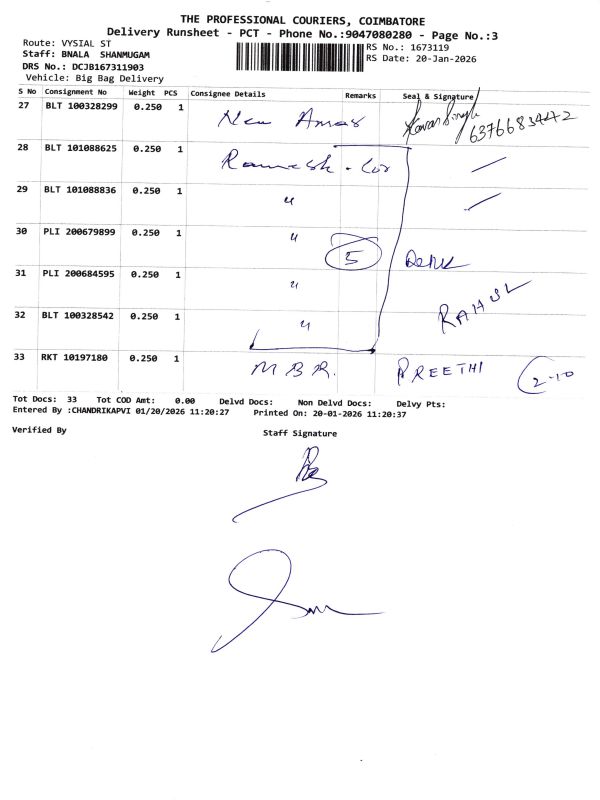 THE PROFESSIONAL COURIERS, COIMBATORE
Delivery Runsheet - PCT - Phone No.:9047080280 - Page No.:3
Route: VYSIAL ST
RS No.: 1673119
Staff: BNALA SHANMUGAM
RS Date: 20-Jan-2026
DRS No.: DCJB167311903
Vehicle: Big Bag Delivery
S No Consignment No Weight PCS Consignee Details Remarks Seal & Signature
27 BLT 100328299 0.250 1 New 6376683442
28 BLT 101088625 0.250 1 Ramesh - Cor
29 BLT 101088836 0.250 1 "
30 PLI 200679899 0.250 1 " 5
31 PLI 200684595 0.250 1 " RAHUL
32 BLT 100328542 0.250 1 "
33 RKT 10197180 0.250 1 M B R. PREETHI 2-10
Tot Docs: 33 Tot COD Amt: 0.00 Delvd Docs: Non Delvd Docs: Delvy Pts:
Entered By :CHANDRIKAPVI 01/20/2026 11:20:27 Printed On: 20-01-2026 11:20:37
Verified By
Staff Signature